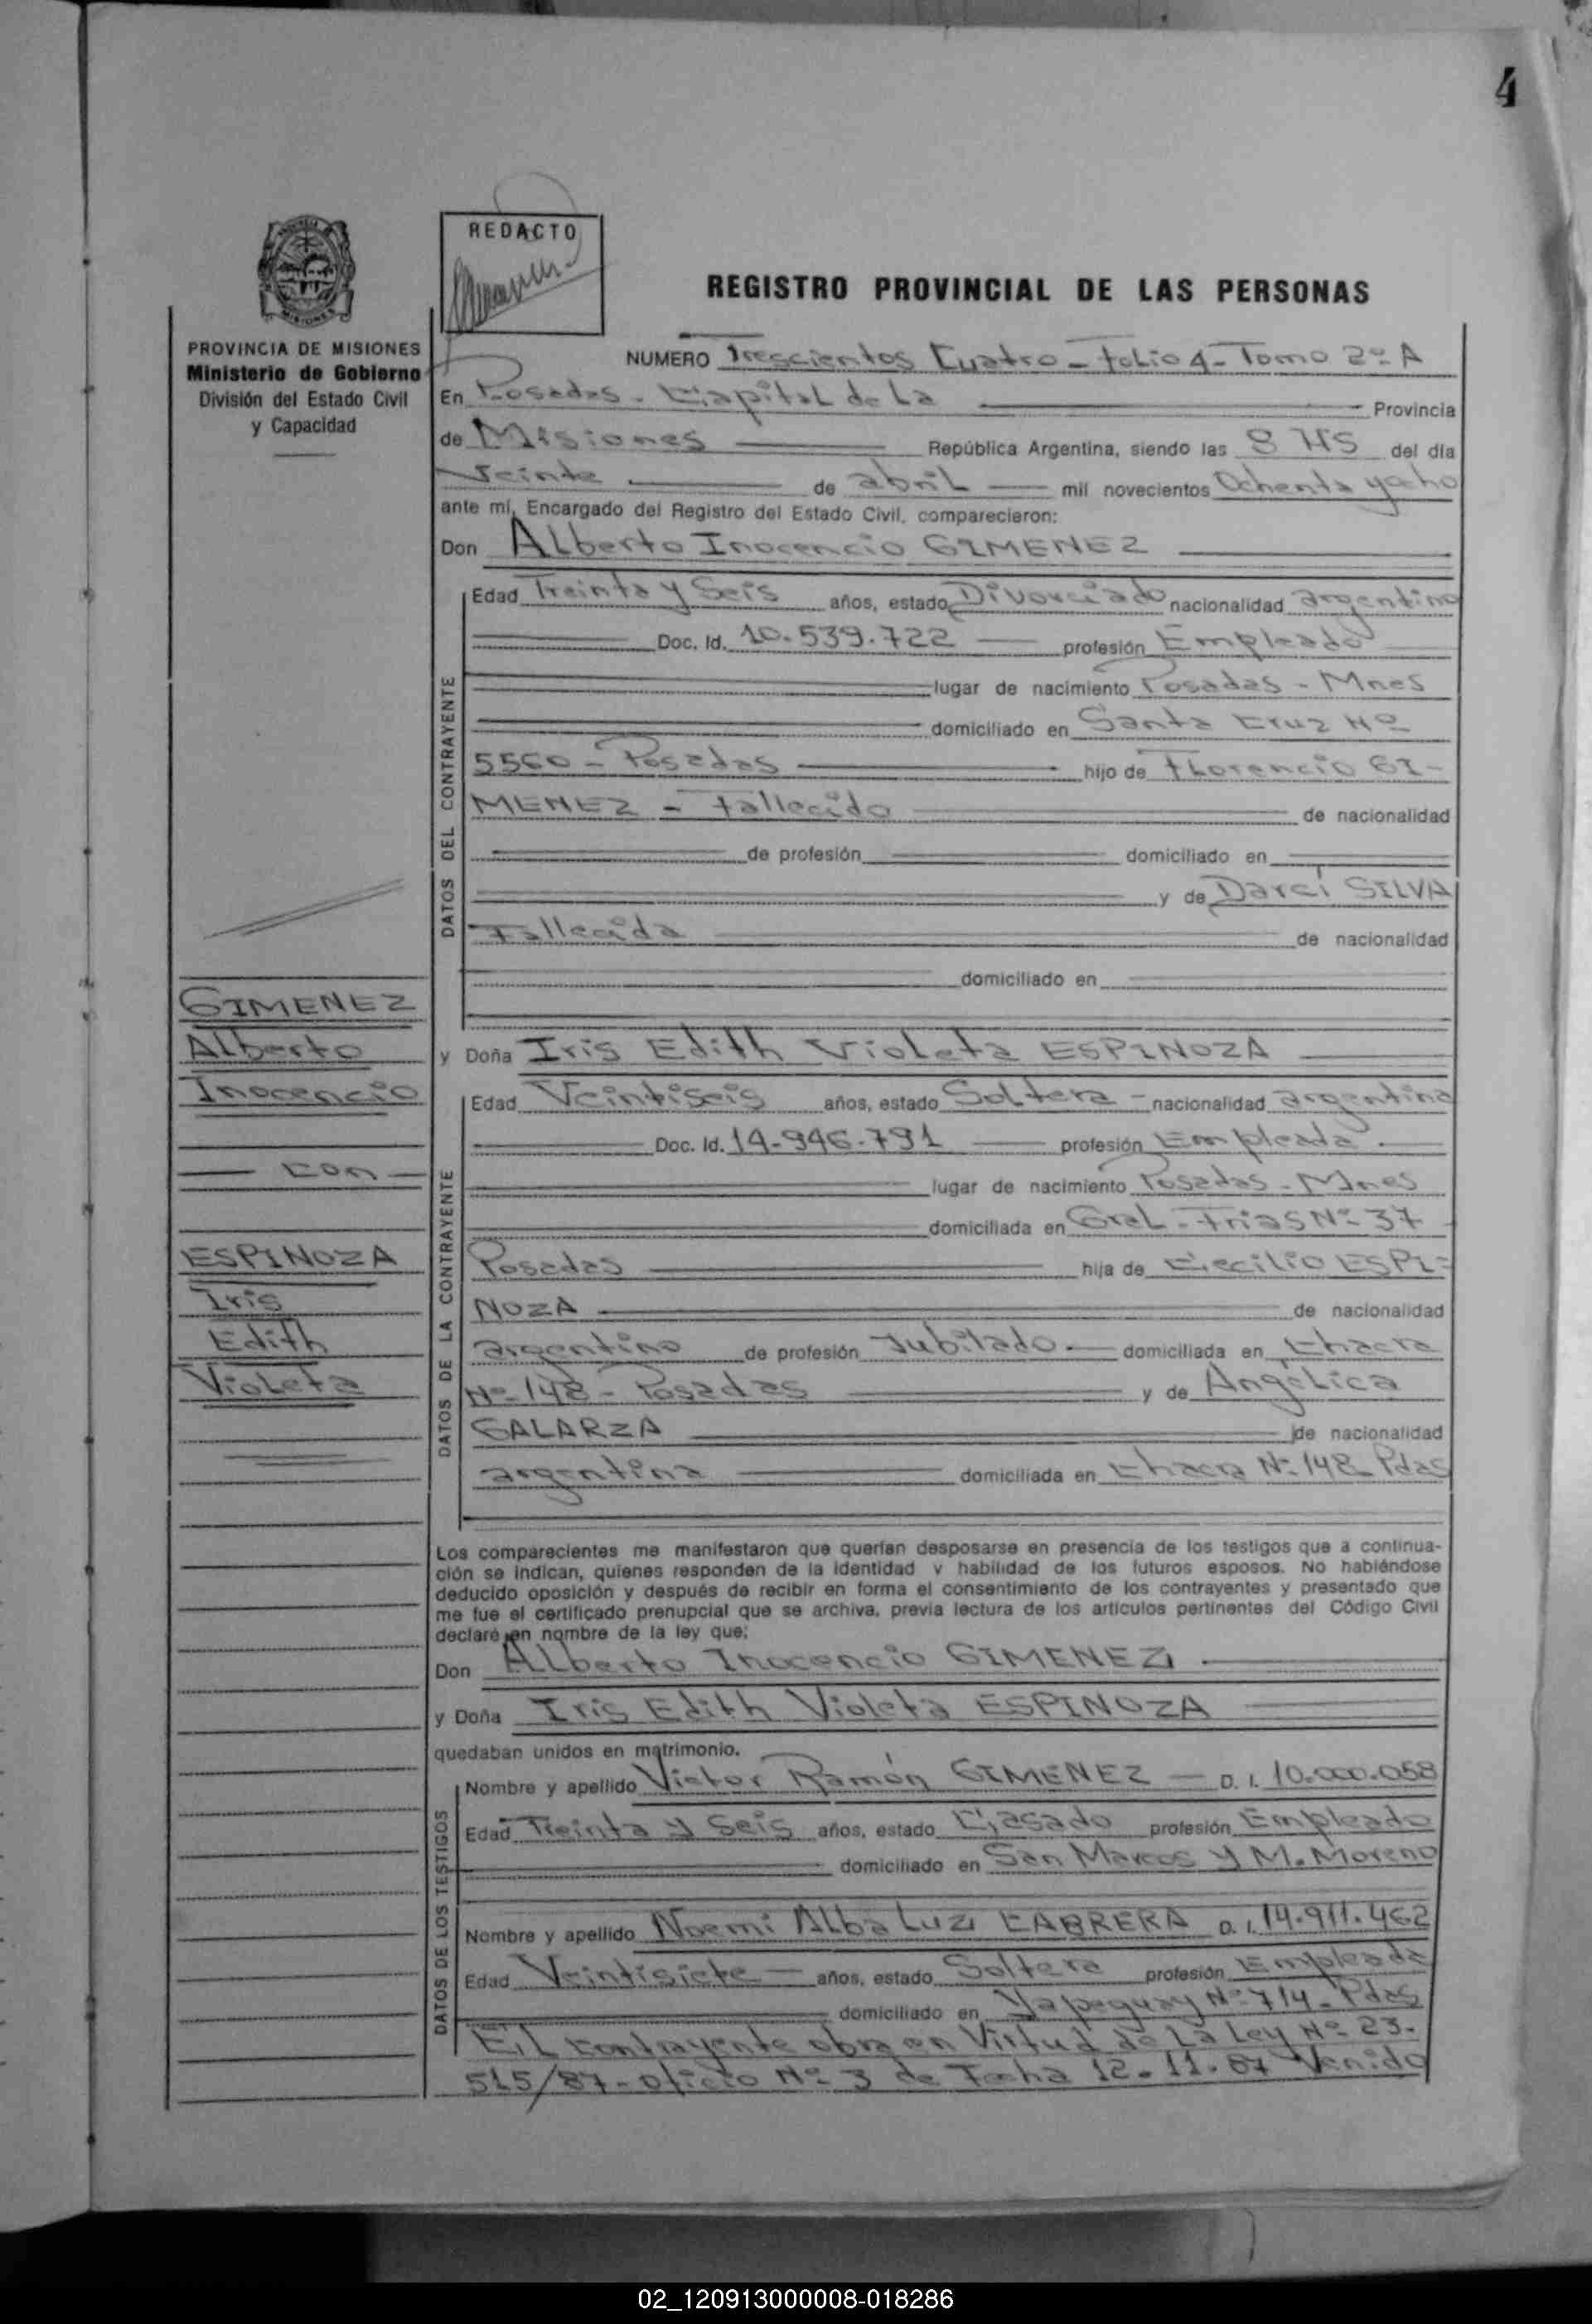 4
REDACTO
REGISTRO PROVINCIAL DE LAS PERSONAS
MISIONES
PROVINCIA DE MISIONES
Ministerio de Gobierno
División del Estado Civil
y Capacidad
NUMERO Trescientos Cuatro - Folio 4 - Tomo 2º A
En Posadas - Capital de La Provincia
de Misiones República Argentina, siendo las 8 HS del día
Veinte de abril mil novecientos Ochenta y ocho
ante mí, Encargado del Registro del Estado Civil, comparecieron:
Don Alberto Inocencio GIMENEZ
DATOS DEL CONTRAYENTE
Edad Treinta y Seis años, estado Divorciado nacionalidad argentino
Doc. Id. 10.539.722 profesión Empleado
lugar de nacimiento Posadas - Mnes
domiciliado en Santa Cruz Nº
5560 - Posadas hijo de Florencio GI-
MENEZ - Fallecido de nacionalidad
de profesión domiciliado en
y de Darci SILVA
Fallecida de nacionalidad
domiciliado en
GIMENEZ
Alberto
Inocencio
con
ESPINOZA
Iris
Edith
Violeta
y Doña Iris Edith Violeta ESPINOZA
DATOS DE LA CONTRAYENTE
Edad Veintiseis años, estado Soltera - nacionalidad argentina
Doc. Id. 14-946-791 profesión Empleada
lugar de nacimiento Posadas - Mnes
domiciliada en Gral - Frias Nº 37
Posadas hija de Cecilio ESPI-
NOZA de nacionalidad
argentino de profesión Jubilado domiciliada en Chacra
Nº 148 - Posadas y de Angélica
GALARZA de nacionalidad
argentina domiciliada en Chacra Nº 148 Pdas
Los comparecientes me manifestaron que querían desposarse en presencia de los testigos que a continua-
ción se indican, quienes responden de la identidad y habilidad de los futuros esposos. No habiéndose
deducido oposición y después de recibir en forma el consentimiento de los contrayentes y presentado que
me fue el certificado prenupcial que se archiva, previa lectura de los artículos pertinentes del Código Civil
declaré en nombre de la ley que:
Don Alberto Inocencio GIMENEZ
y Doña Iris Edith Violeta ESPINOZA
quedaban unidos en matrimonio.
DATOS DE LOS TESTIGOS
Nombre y apellido Victor Ramón GIMENEZ - D. I. 10.000.058
Edad Treinta y Seis años, estado Casado profesión Empleado
domiciliado en San Marcos y M. Moreno
Nombre y apellido Noemi Alba Luz CABRERA D. I. 14.911.462
Edad Veintisiete - años, estado Soltera profesión Empleada
domiciliado en Yapeguay Nº 714 - Pdas
El Contrayente obra en Virtud de La Ley Nº 23.
515/87 - Oficio Nº 3 de Fecha 12.11.87 Venido
02_120913000008-018286